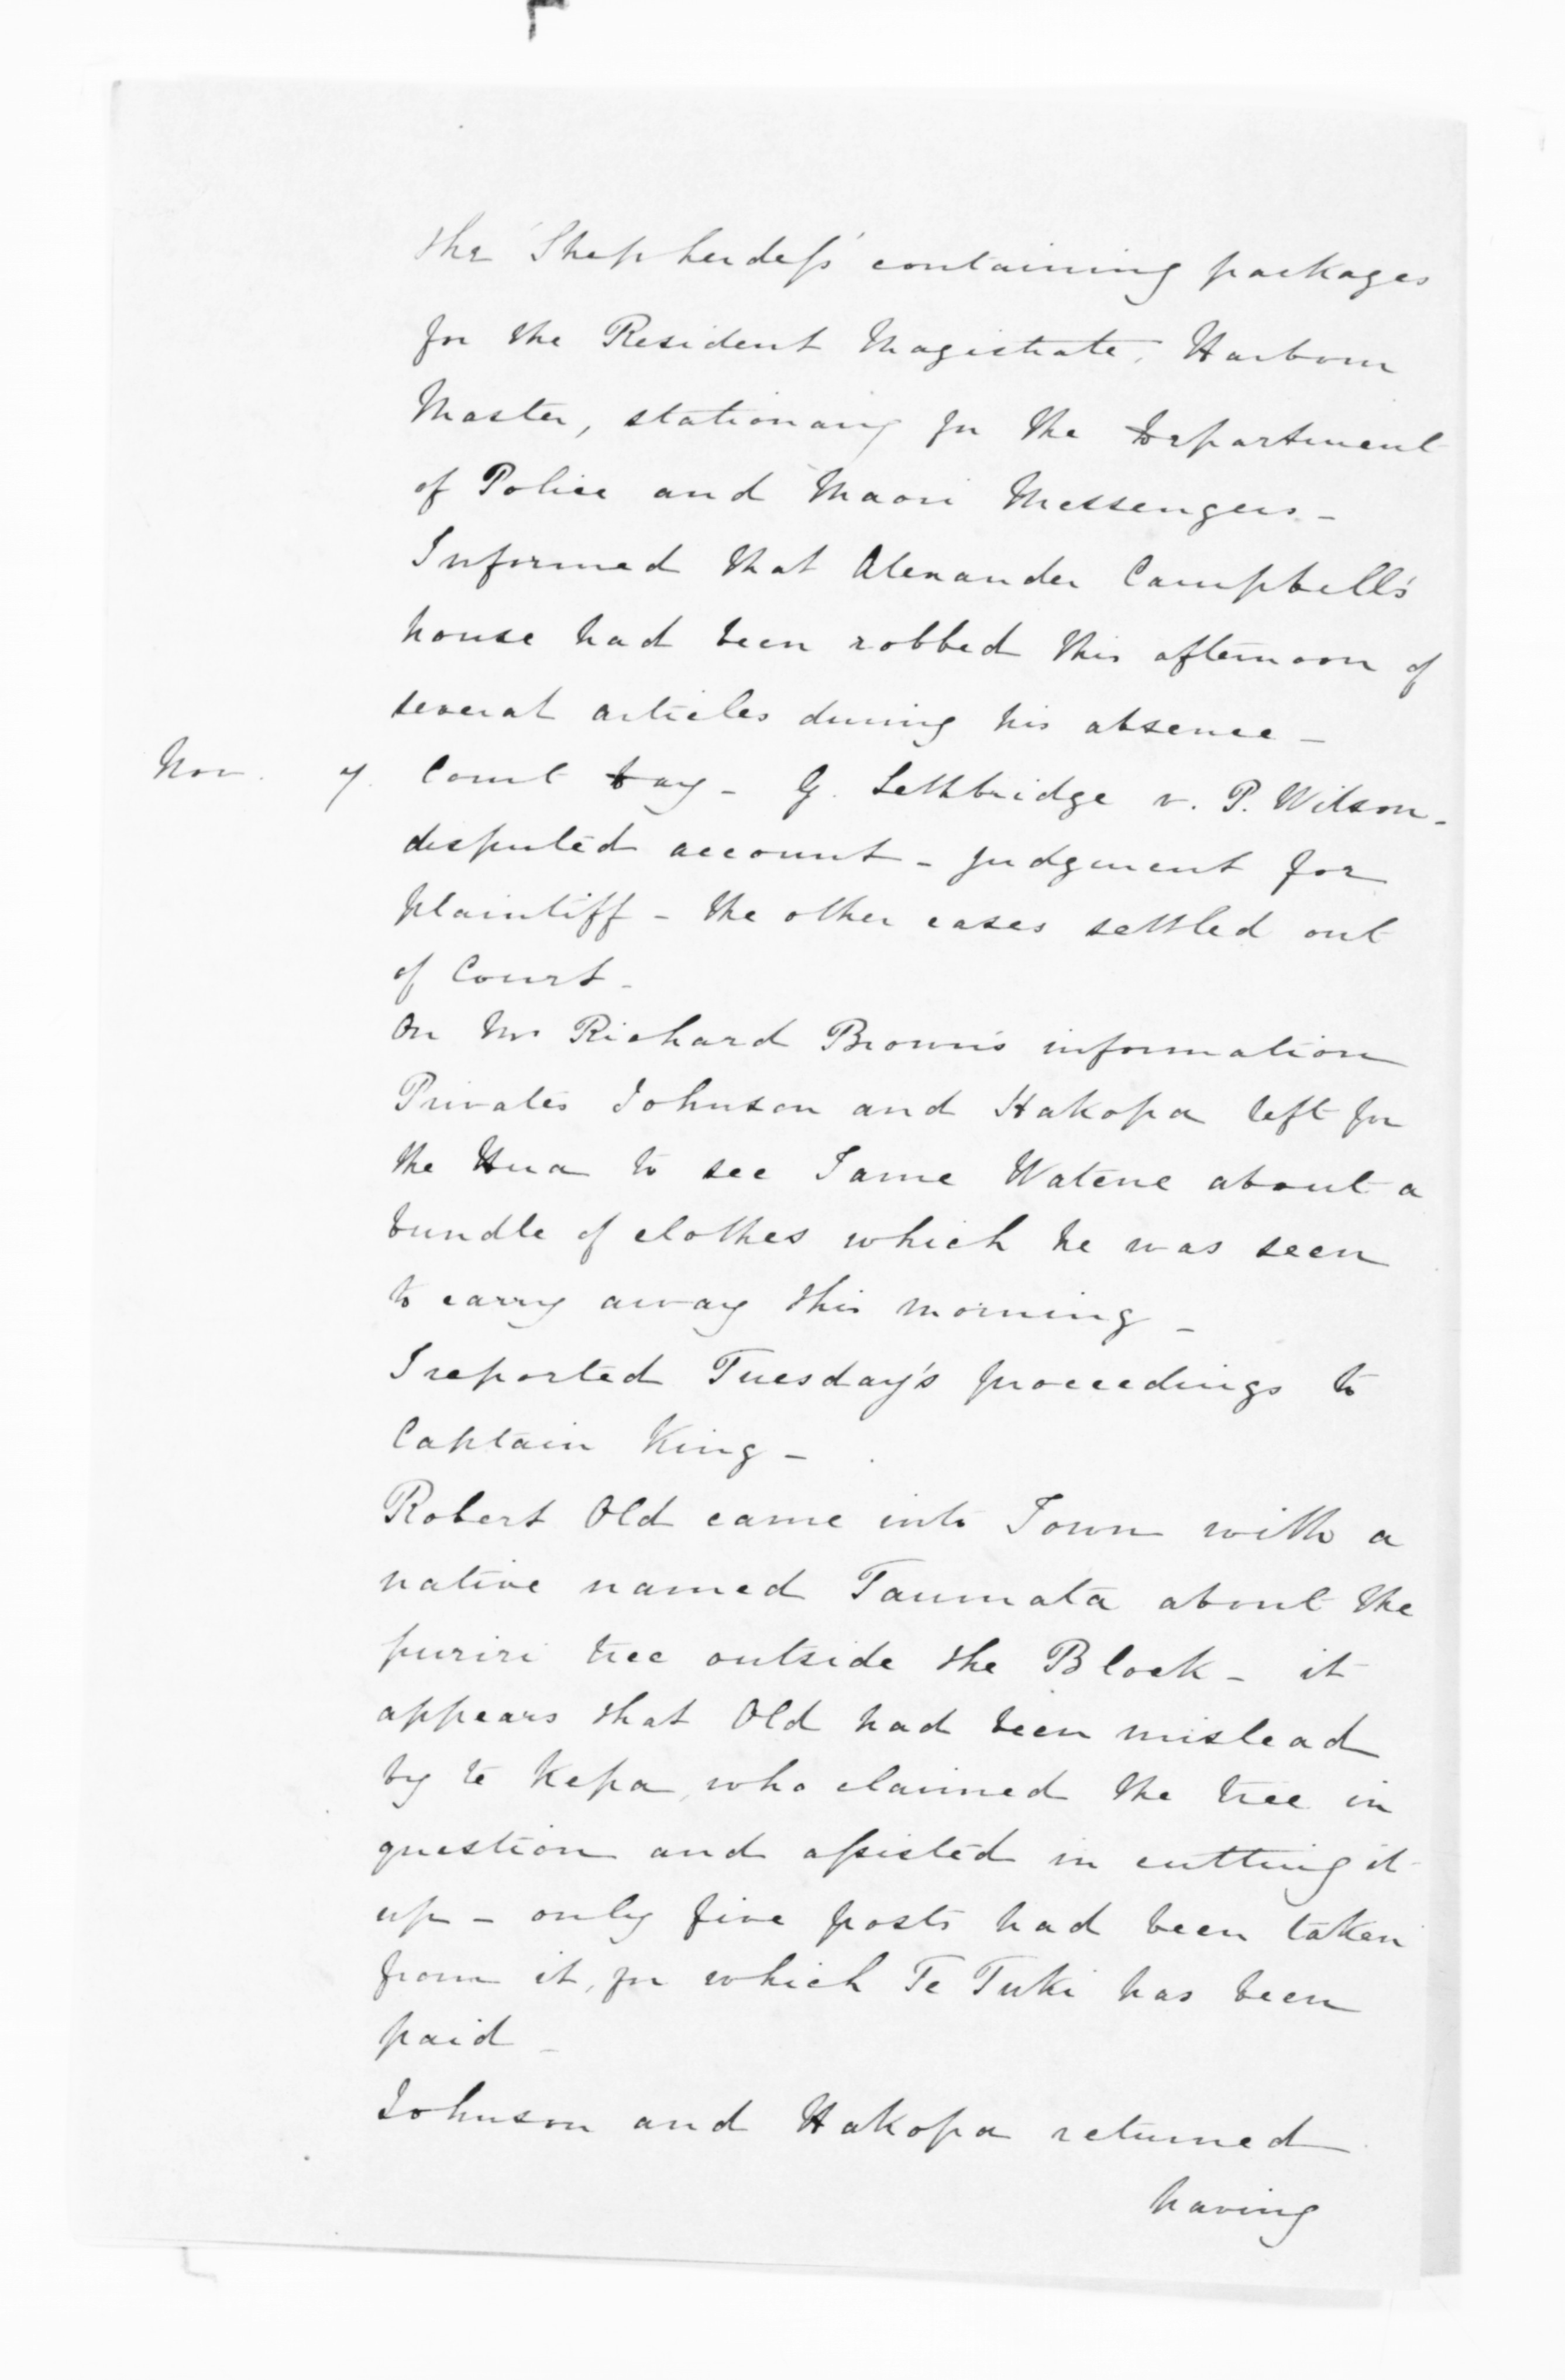 the 'Shepherdess' containing packages
for the Resident Magistrate, Harbour
Master, stationary for the Department
of Police and Maori Messengers -
Informed that Alexander Campbell's
house had been robbed this afternoon of
several articles during his absence -
Nov. 7. Court Day - G. Lethbridge v. P. Wilson -
disputed account - judgment for
plaintiff - the other cases settled out
of Court -
On Mr Richard Brown's information
Privates Johnson and Hakopa left for
the Hua to see Tame Watene about a
bundle of clothes which he was seen
to carry away this morning -
I reported Tuesday's proceedings to
Captain King -
Robert Old came into Town with a
native named Taumata about the
puriri tree outside the Block - it
appears that Old had been mislead
by te Kepa, who claimed the tree in
question and assisted in cutting it
up - only five posts had been taken
from it, for which Te Tuki has been
paid -
Johnson and Hakopa returned
having